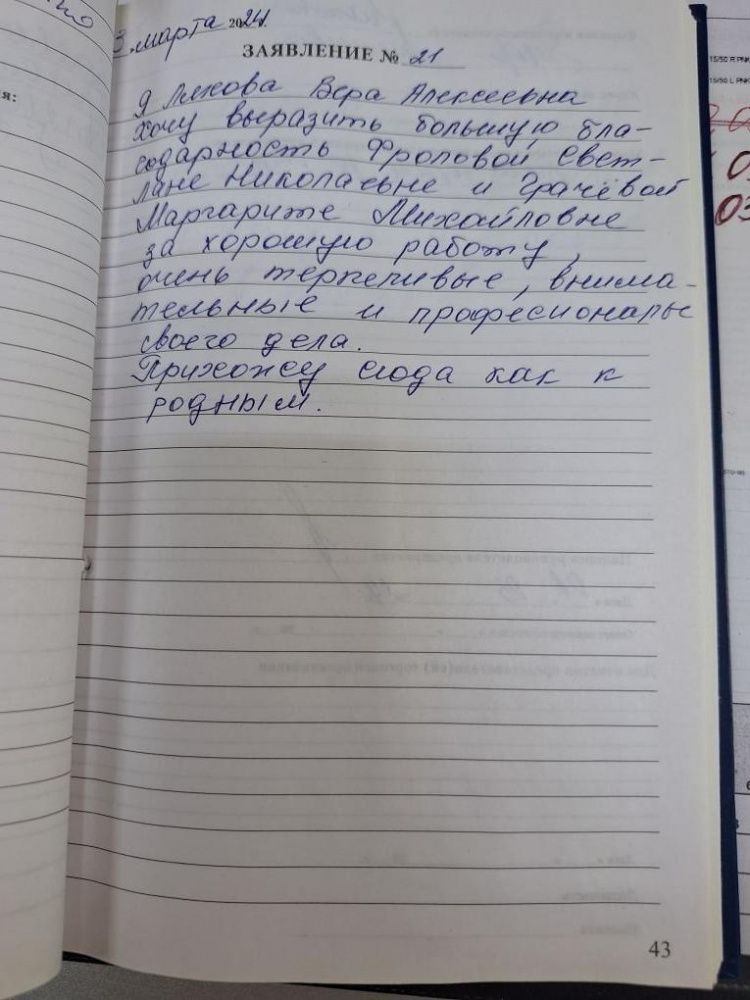 марта 2024.
ЗАЯВЛЕНИЕ № 21
Я Ляхова Вера Алексеевна
хочу выразить большую бла-
годарность Фроловой Свет-
лане Николаевне и Грачёвой
Маргарите Михайловне
за хорошую работу,
очень терпеливые, внима-
тельные и професионалы
своего дела.
Прихожу сюда как к
родным.
43
я:
15/50 R PNK
15/50 L PNK